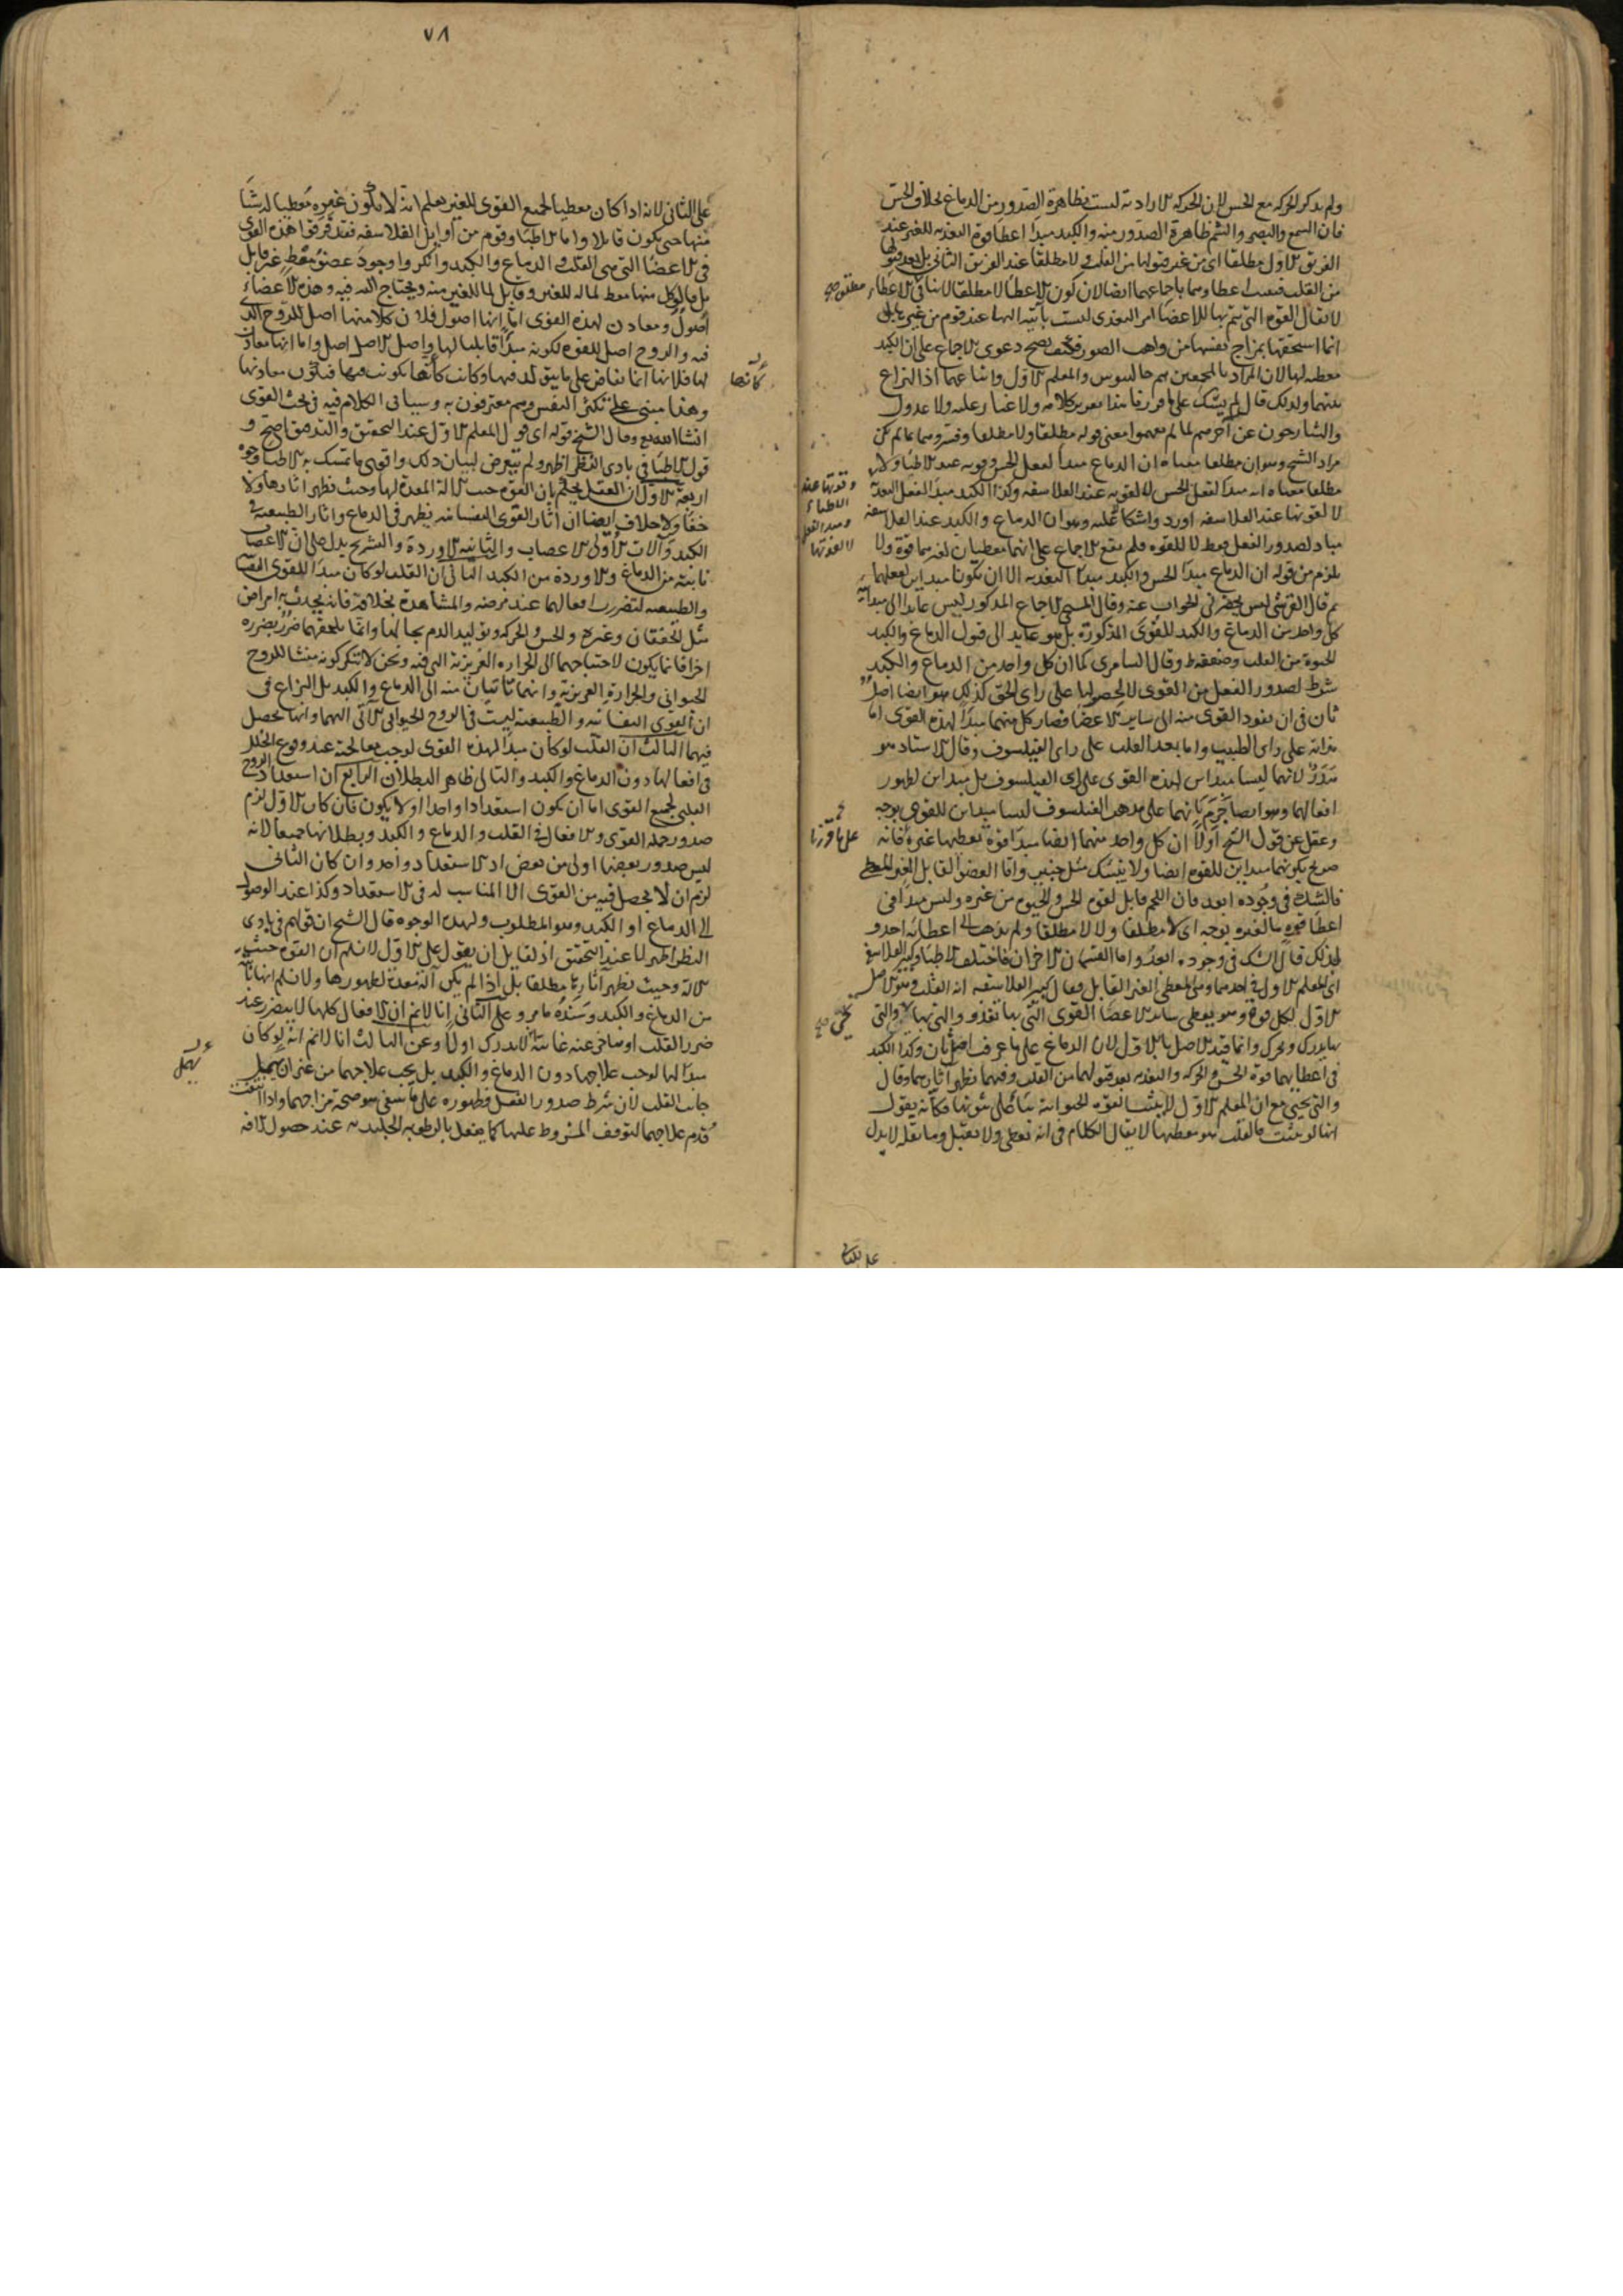 ولم يذكر الحركة مع الحس لان الحركة الارادية ليست ظاهرة الصدور من الدماغ بخلاف الحس
فان السمع والبصر والشم ظاهرة الصدور منه والكبد مبدأ اعطا قوة التغذية للغير عند
الفريق الاول مطلقا اى من غير قبولها من القلب لا مطلقا عند الفريق الثانى بل بعد قبولها
من القلب اعطاوهما باجماعهما ايضا لان كون الاعطا لا مطلقا لا ينافى الاعطاء
مطلقا صح
لا يقال القوة التى يتم بها للاعضا امر التغذى ليست بآتية اليها عند قوم من غير بل
انما استحقها بمزاج نفسها من واهب الصور فكيف يصح دعوى الاجماع على ان الكبد
معطية لها لان المراد بالمجمعين هم جالينوس والمعلم الاول واتباعهما اذ النزاع
بينهما ولذلك قال لم يشك على ما قررنا هذا تقرير كلامه ولا غبار عليه ولا عدول
والشارحون عن آخرهم لما لم يفهموا معنى قوله مطلقا ولا مطلقا وفسروهما بما لم يكن
مراد الشيخ وهو ان مطلقا معناه ان الدماغ مبدأ لفعل الحس وقوته عند الاطبا ولا
مطلقا معناه انه مبدأ لفعل الحس لا لقوته عند الفلاسفة وكذا الكبد مبدأ لفعل التغذية
وقوتها عند
الاطباء
ومبدا لفعلها
لا لقوتها
لا لقوتها عند الفلاسفة اورد واشكا عليه وهو ان الدماغ والكبد عند الفلاسفة
مباد لصدور الفعل فقط لا للقوة فلم يقع الاجماع على انهما معطيان لغيرهما قوة ولا
يلزم من قوله ان الدماغ مبدأ الحس والكبد مبدأ التغذية الا ان يكونا مبداين لفعلهما
ثم قال القرشى ليس يحضرنى الجواب عنه وقال المسيحى الاجماع المذكور ليس عايدا الى مبدائية
كل واحد من الدماغ والكبد للقوى المذكورة بل هو عايد الى قبول الدماغ والكبد
الحيوة من القلب فقط وقال السامرى كما ان كل واحد من الدماغ والكبد
شرط لصدور الفعل من القوى لا لحصولها على راى الحق كذلك هو ايضا اصل
ثان فى ان نفوذ القوى منه الى ساير الاعضا فصار كل منهما مبدأ لهذه القوى اما
بذاته على راى الطبيب واما بعد القلب على راى الفيلسوف وقال الاستاد هو
لانهما ليسا مبداين لهذه القوى على راى الفيلسوف بل مبداين لظهور
افعالهما وهو ايضا جزم بانهما على مذهب الفيلسوف ليسا مبداين للقوى بوجه
وغفل عن قول الشيخ اولا ان كل واحد منهما ايضا مبدأ قوة يعطيها غيره فانه
على ما قررنا
صريح بكونهما مبداين للقوة ايضا ولا ينبئك مثل خبير واما العضو القابل الغير المعطى
فالشك فى وجوده ابعد فان اللحم قابل لقوة الحس والحيوة من غيره وليس مبدأ فى
اعطا قوة ما لغيره بوجه اى لا مطلقا ولا لا مطلقا ولم يذهب الى اعطائه احد و
لذلك قال الشك فى وجوده ابعد واما القسمان الاخران فاختلف الاطبا وكبير الفلاسفة
اى المعلم الاول فى احدهما وهو المعطى الغير القابل فقال كبير الفلاسفة انه القلب وهو الاصل
الاول لكل قوة وهو يعطى ساير الاعضا القوى التى بها تغذو والتى بها والتى
تحيى صح
بها يدرك ويحرك وانما قيد الاصل بالاول لان الدماغ على ما عرف اصل ثان وكذا الكبد
فى اعطايهما قوة الحس والحركة والتغذية بعد قبولهما من القلب وفيهما تظهر آثارهما وقال
والتى يحيى مع ان المعلم الاول لا يثبت القوة الحيوانية بناء على ثبوتها فكأنه يقول
انها لو ثبتت فالقلب هو معطيها لا يقال الكلام فى انه يعطى ولا يقبل وما نقله لا يدل
على الثانى
٧٨
على الثانى لانه اذا كان معطيا لجميع القوى للغير يعلم انه لا يكون غيره معطيا له شيا
منها حتى يكون قابلا واما الاطبا وقوم من اوايل الفلاسفة فقد فرقوا هذه القوى
فى الاعضا التى هى القلب والدماغ والكبد وانكروا وجود عضو معط غير قابل
بل قالوا كل منها معط لما له للغير وقابل لما للغير منه ويحتاج اليه فيه وهذه الاعضاء
اصول ومعادن لهذه القوى اما انها اصول فلان كلا منها اصل للروح الذى
فيه والروح اصل للقوة لكونه مبدأ قابليا لها واصل الاصل اصل واما انها معادن
لها فلانها انما تفاض على ما يتولد فيها وكانت كأنها تكونت فيها فتكون معادنها
كأنها
وهذا مبنى على تكثر النفس وهم معترفون به وسياتى الكلام فيه فى بحث القوى
انشا الله تع وقال الشيخ قوله اى قول المعلم الاول عند التحقيق والتدقيق اصح و
قول الاطبا فى بادى النظر اظهر ولم يتعرض لبيان ذلك واقوى ما تمسك به الاطبا وجوه
اربعة الاول ان العقل يحكم بان القوة حيث الآلة المعدة لها وحيث تظهر آثارها ولا
خفا ولا خلاف ايضا ان آثار القوى النفسانية يظهر فى الدماغ واثار الطبيعية فى
الكبد وآلات الاولى الاعصاب والثانية الاوردة والتشريح يدل على ان الاعصاب
نابتة من الدماغ والاوردة من الكبد الثانى ان القلب لو كان مبدأ للقوى النفسانية
والطبيعية لتضررت افعالهما عند مرضه والمشاهدة بخلافه فانه يحدث به امراض
مثل الخفقان وغيره والحس والحركة وتوليد الدم بحالها وانما يلحقهما ضرر بضرره
اخرا فانما يكون لاحتياجهما الى الحرارة الغريزية التى فيه ونحن لا ننكر كونه منشا للروح
الحيوانى والحرارة الغريزية وانهما تاتيان منه الى الدماغ والكبد بل النزاع فى
ان القوى النفسانية والطبيعية ليست فى الروح الحيوانى الآتى اليهما وانها تحصل
فيهما الثالث ان القلب لو كان مبدأ لهذه القوى لوجب معالجته عند وقوع الخلل
فى افعالها دون الدماغ والكبد والتالى ظاهر البطلان الرابع ان استعداد الروح
القلبى لجميع القوى اما ان يكون استعدادا واحدا او لا يكون فان كان الاول لزم
صدور جملة القوى والافعال فى القلب والدماغ والكبد وبطلانها جميعا لانه
ليس صدور بعضها اولى من بعض اذ الاستعداد واحد وان كان الثانى
لزم ان لا يحصل فيه من القوى الا المناسب له فى الاستعداد وكذا عند الوصول
الى الدماغ او الكبد وهو المطلوب ولهذه الوجوه قال الشيخ ان قولهم فى بادى
النظر اظهر لا عند التحقيق اذ لقايل ان يقول على الاول لا نسلم ان القوة حيث
الآلة وحيث تظهر آثارها مطلقا بل اذا لم يكن آلة معدة لظهورها ولا نسلم انها نابتة
من الدماغ والكبد وسنده ما مر وعلى الثانى انا لا نم ان الافعال كلها لا يتضرر عند
ضرر القلب او يتاخر عنه غايته لا يدرك اولا وعن الثالث انا لا نم انه لو كان
مبدأ لها لوجب علاجها دون الدماغ والكبد بل يجب علاجهما من غير ان يهمل
يهمل
جانب القلب لان شرط صدور الفعل وظهوره على ما ينبغى هو صحة مزاجهما واذا
قدم علاجهما لتوقف المشروط عليها كما يفعل بالرطوبة الجليدية عند حصول الآفة